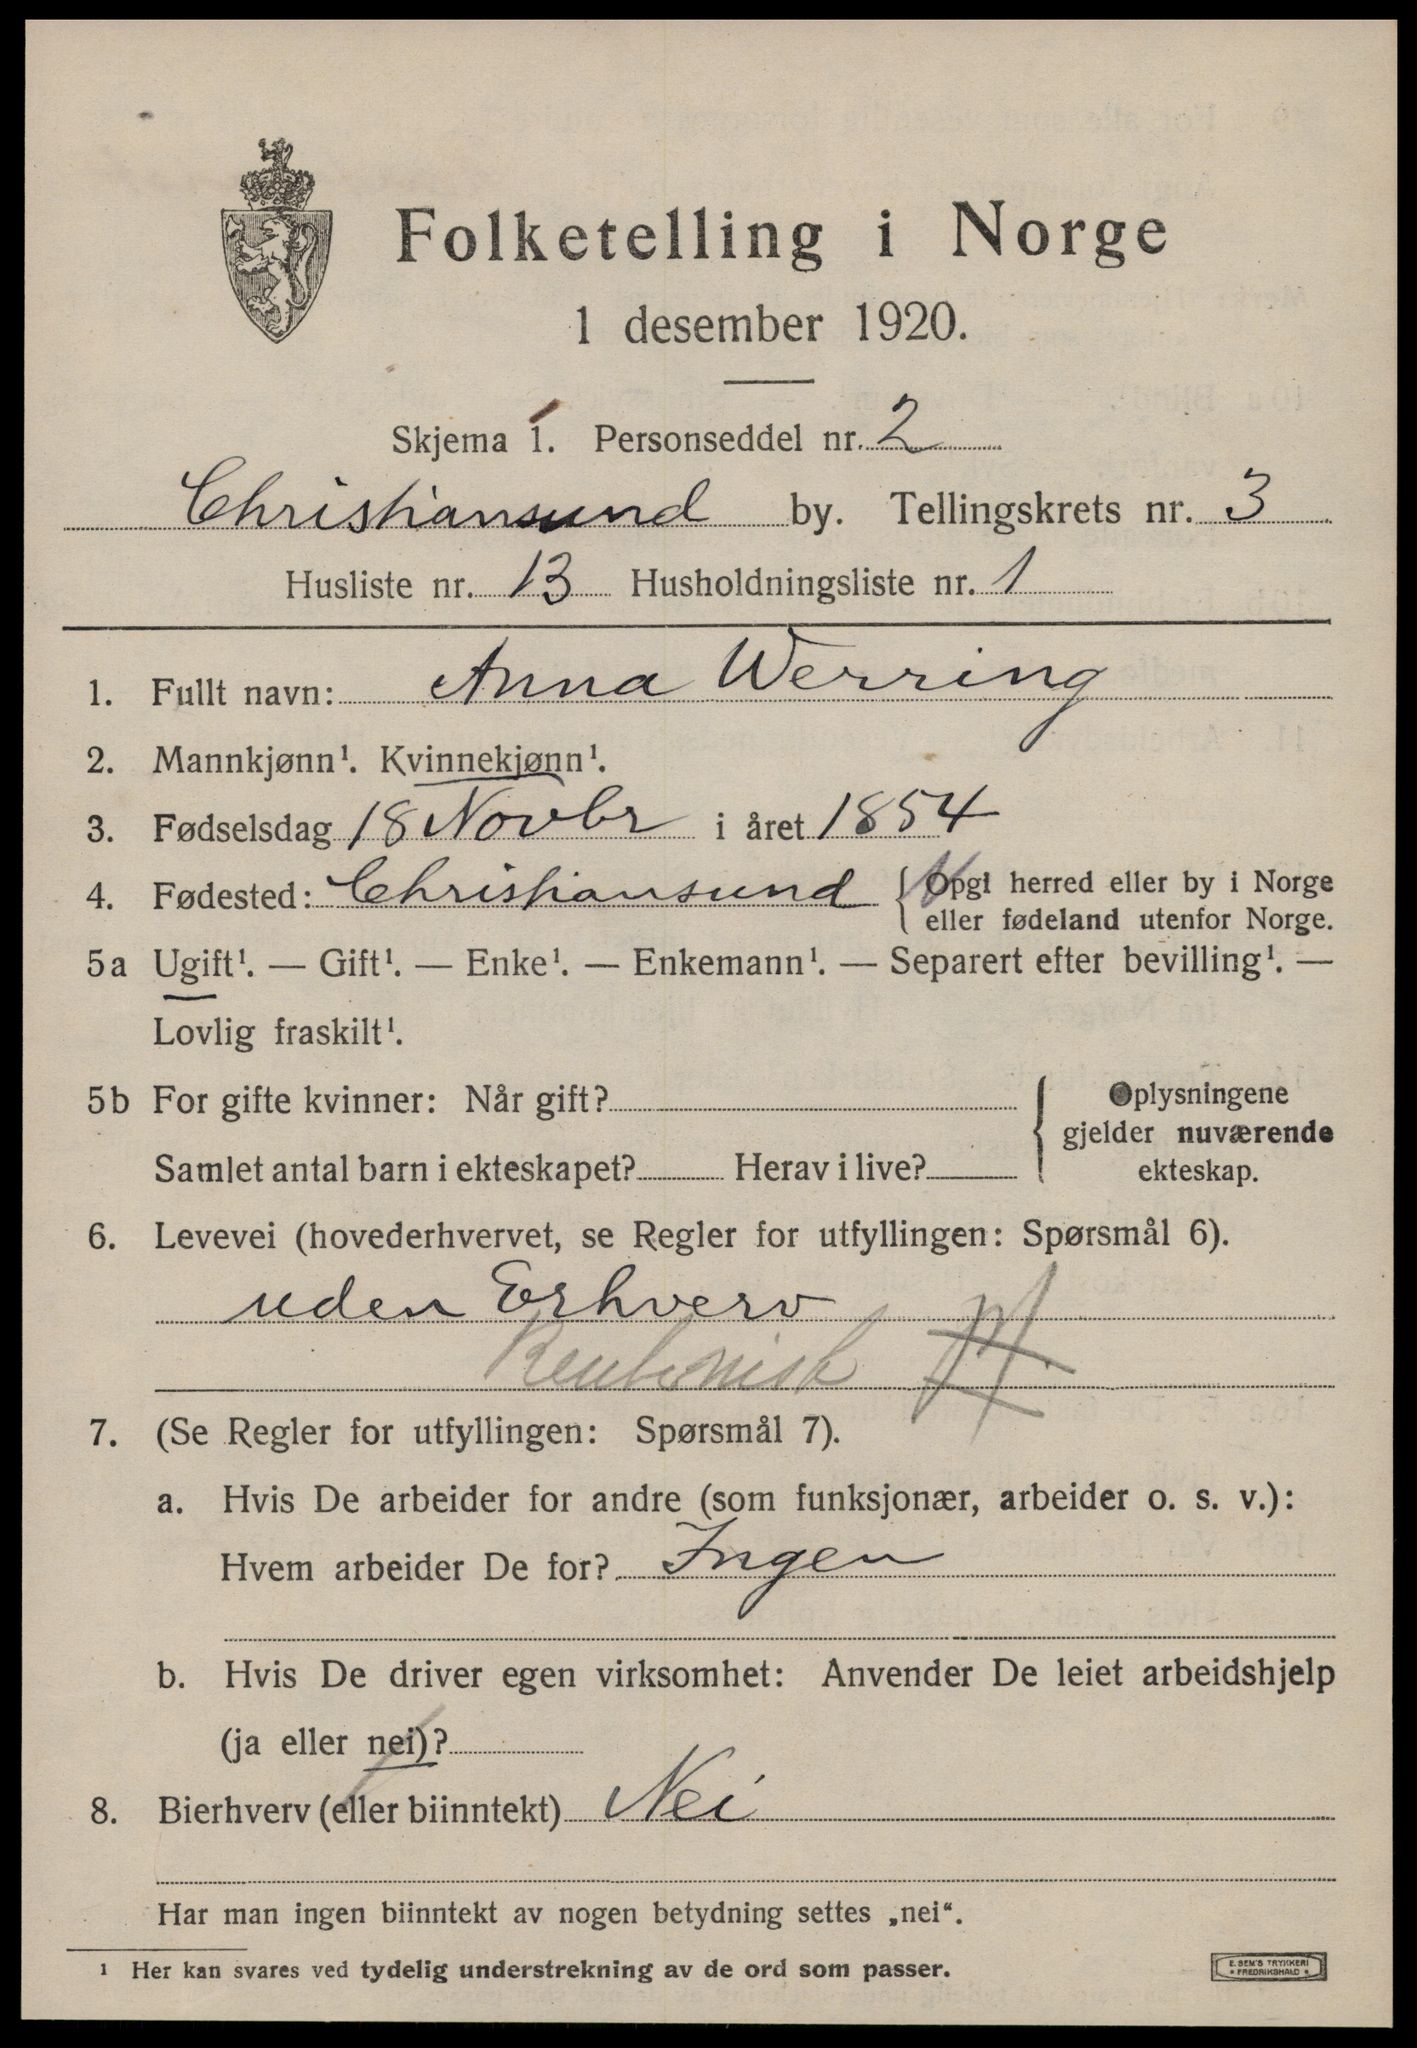 Folketelling i Norge
1 desember 1920.
Skjema 1. Personseddel nr. 2
Christiansund by. Tellingskrets nr. 3
Husliste nr. 13 Husholdningsliste nr. 1
1. Fullt navn: Anna Werring
2. Mannkjønn¹. Kvinnekjønn¹.
3. Fødselsdag 18 Novbr i året 1854
4. Fødested: Christiansund { Opgi herred eller by i Norge
eller fødeland utenfor Norge.
5a Ugift¹. — Gift¹. — Enke¹. — Enkemann¹. — Separert efter bevilling¹. —
Lovlig fraskilt¹.
5b For gifte kvinner: Når gift? { Oplysningene
gjelder nuværende
Samlet antal barn i ekteskapet? Herav i live? ekteskap.
6. Levevei (hovederhvervet, se Regler for utfyllingen: Spørsmål 6).
uden Erhverv
7. (Se Regler for utfyllingen: Spørsmål 7).
a. Hvis De arbeider for andre (som funksjonær, arbeider o. s. v.):
Hvem arbeider De for? Ingen
b. Hvis De driver egen virksomhet: Anvender De leiet arbeidshjelp
(ja eller nei)?
8. Bierhverv (eller biinntekt) Nei
Har man ingen biinntekt av nogen betydning settes „nei“.
¹ Her kan svares ved tydelig understrekning av de ord som passer.
E. SEM'S TRYKKERI
FREDRIKSHALD